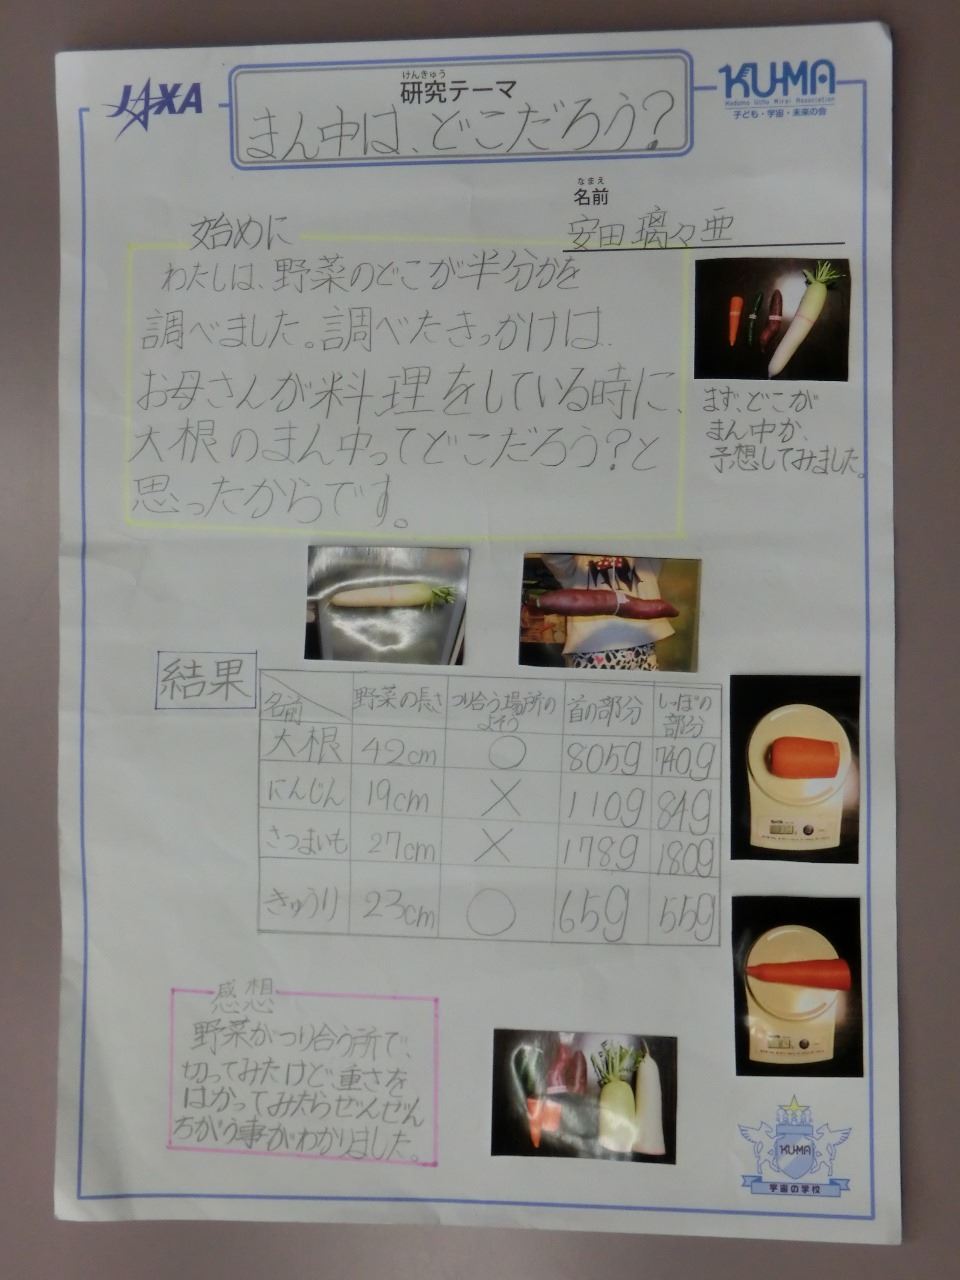 JAXA
けんきゅう
研究テーマ
まん中は、どこだろう?
KU-MA
Kodomo Uchu Mirai Association
子ども・宇宙・未来の会
なまえ
名前
安田璃々亜
始めに
わたしは、野菜のどこが半分かを
調べました。調べたきっかけは、
お母さんが料理をしている時に、
大根のまん中ってどこだろう?と
思ったからです。
まず、どこが
まん中か、
予想してみました。
結果
名前 野菜の長さ つり合う場所のよそう 首の部分 しっぽの部分
大根 42cm ○ 805g 740g
にんじん 19cm × 110g 84g
さつまいも 27cm × 178g 180g
きゅうり 23cm ○ 65g 55g
感想
野菜がつり合う所で、
切ってみたけど、重さを
はかってみたらぜんぜん
ちがう事がわかりました。
KU-MA
宇宙の学校